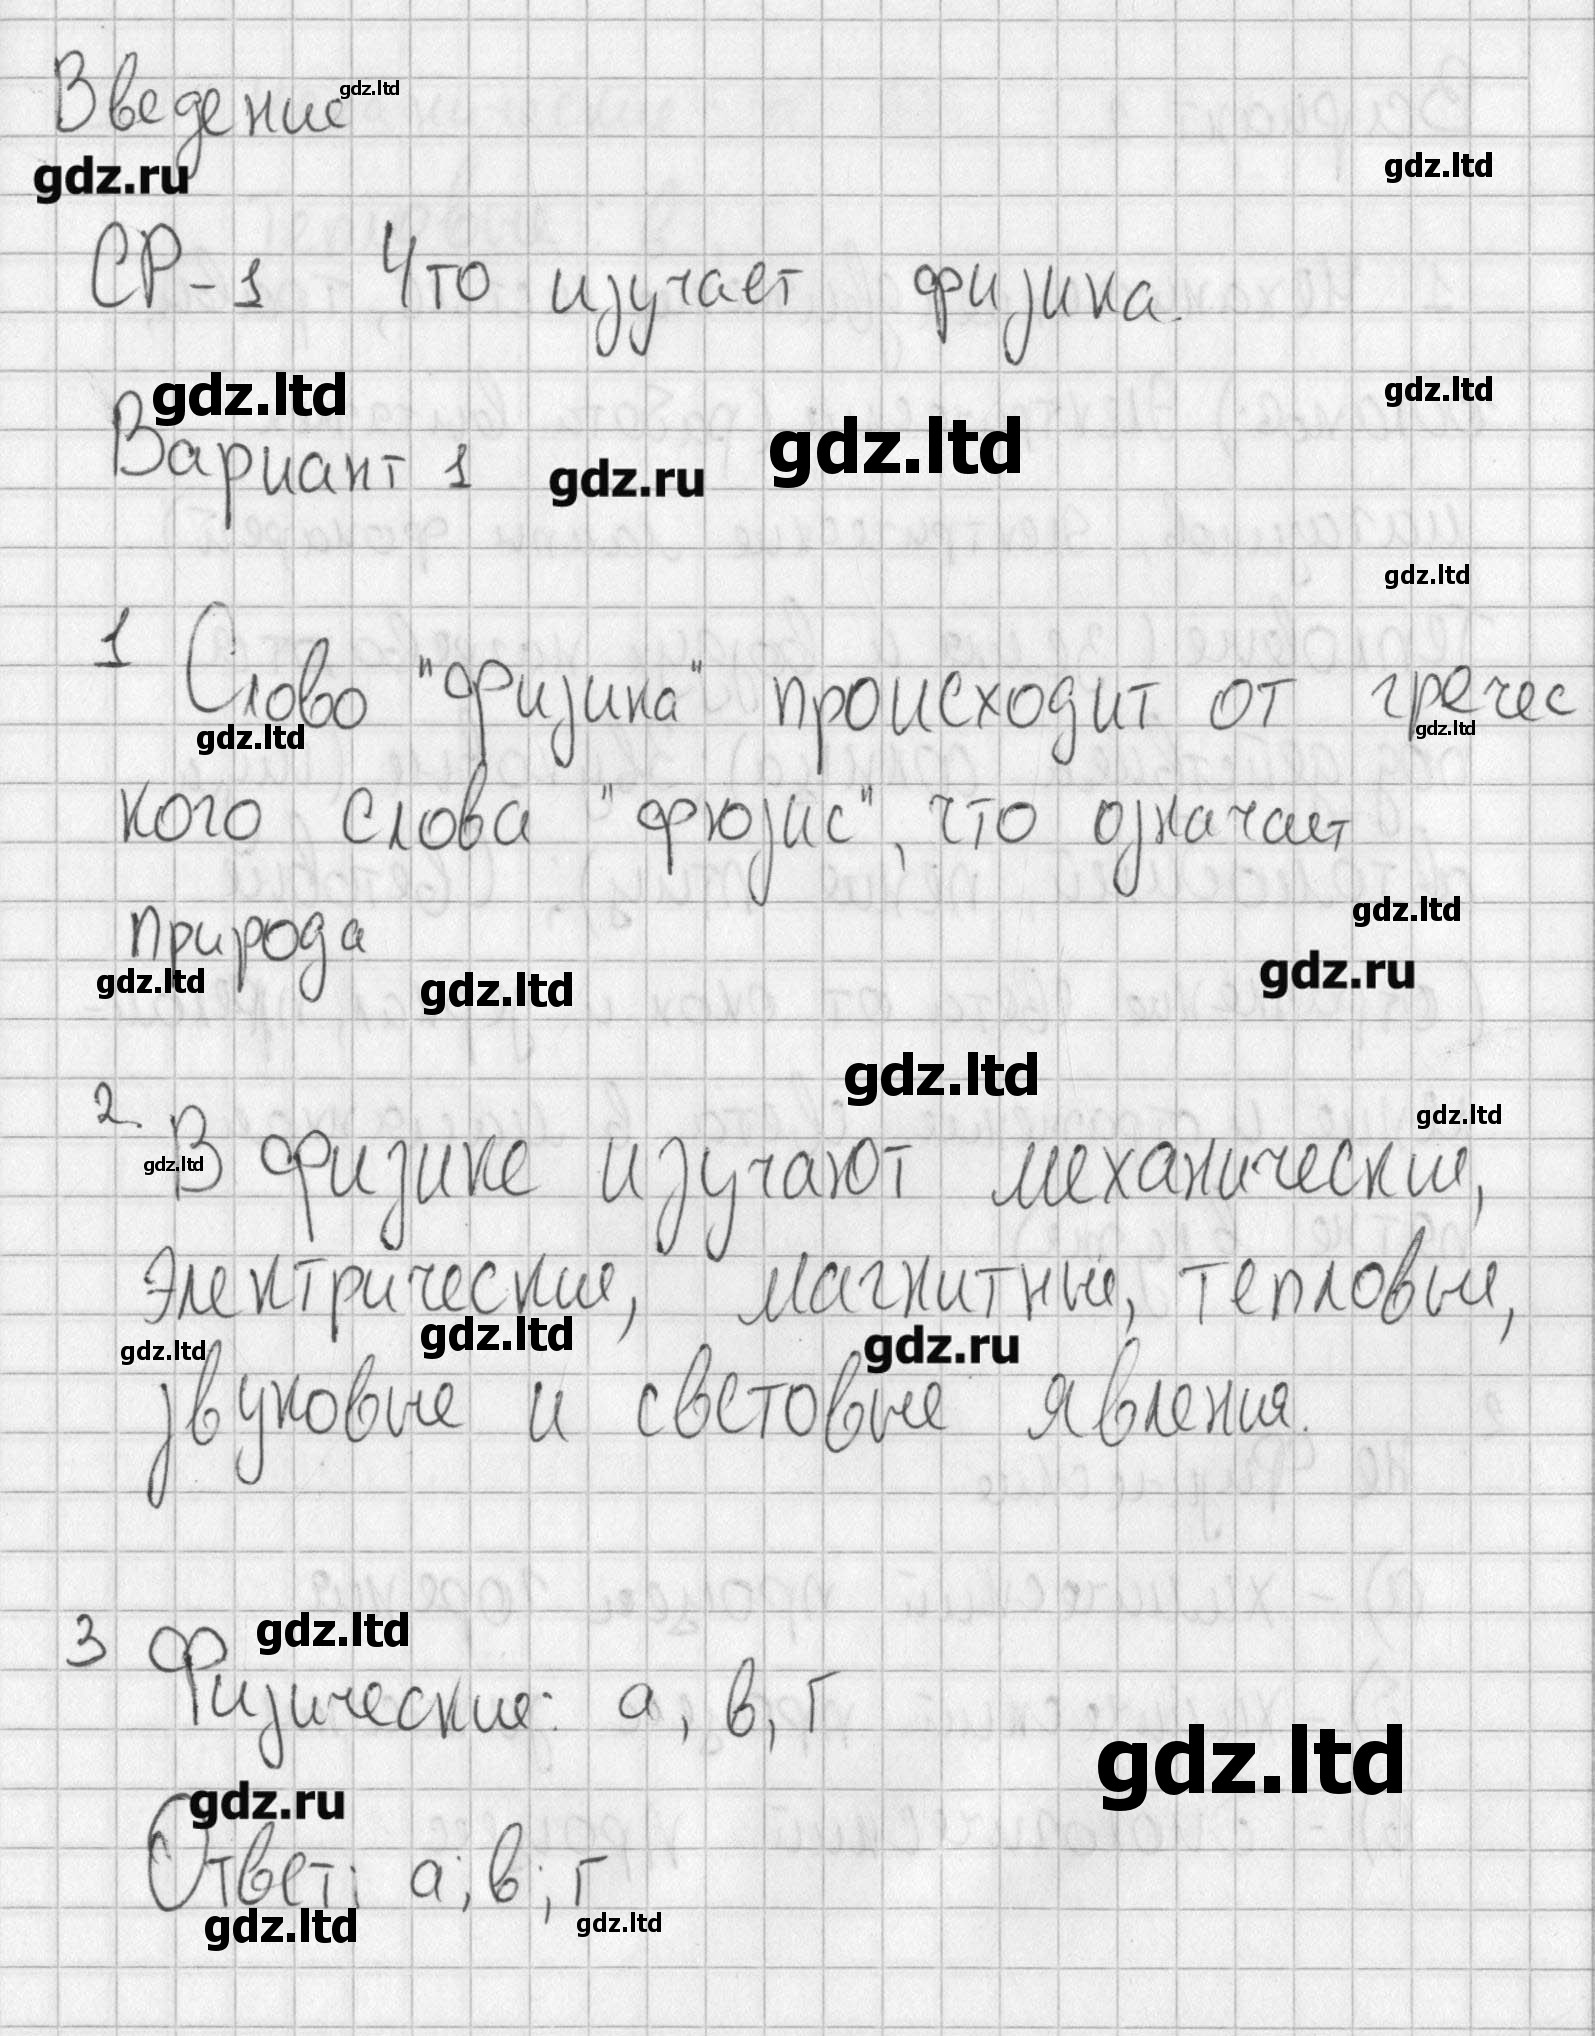 Введение
gdz.ltd
gdz.ru
gdz.ltd
СР-1 Что изучает физика.
gdz.ltd
gdz.ltd
Вариант 1
gdz.ru
gdz.ltd
gdz.ltd
1 Слово "физика" происходит от гречес
gdz.ltd
gdz.ltd
кого слова "фюзис", что означает
природа
gdz.ltd
gdz.ltd
gdz.ltd
gdz.ru
gdz.ltd
gdz.ltd
2. В физике изучают механические,
gdz.ltd
электрические, магнитные, тепловые,
gdz.ltd
gdz.ltd
gdz.ru
звуковые и световые явления.
3 Физические: а, в, г
gdz.ltd
gdz.ltd
gdz.ru
Ответ: а; в; г
gdz.ltd
gdz.ltd